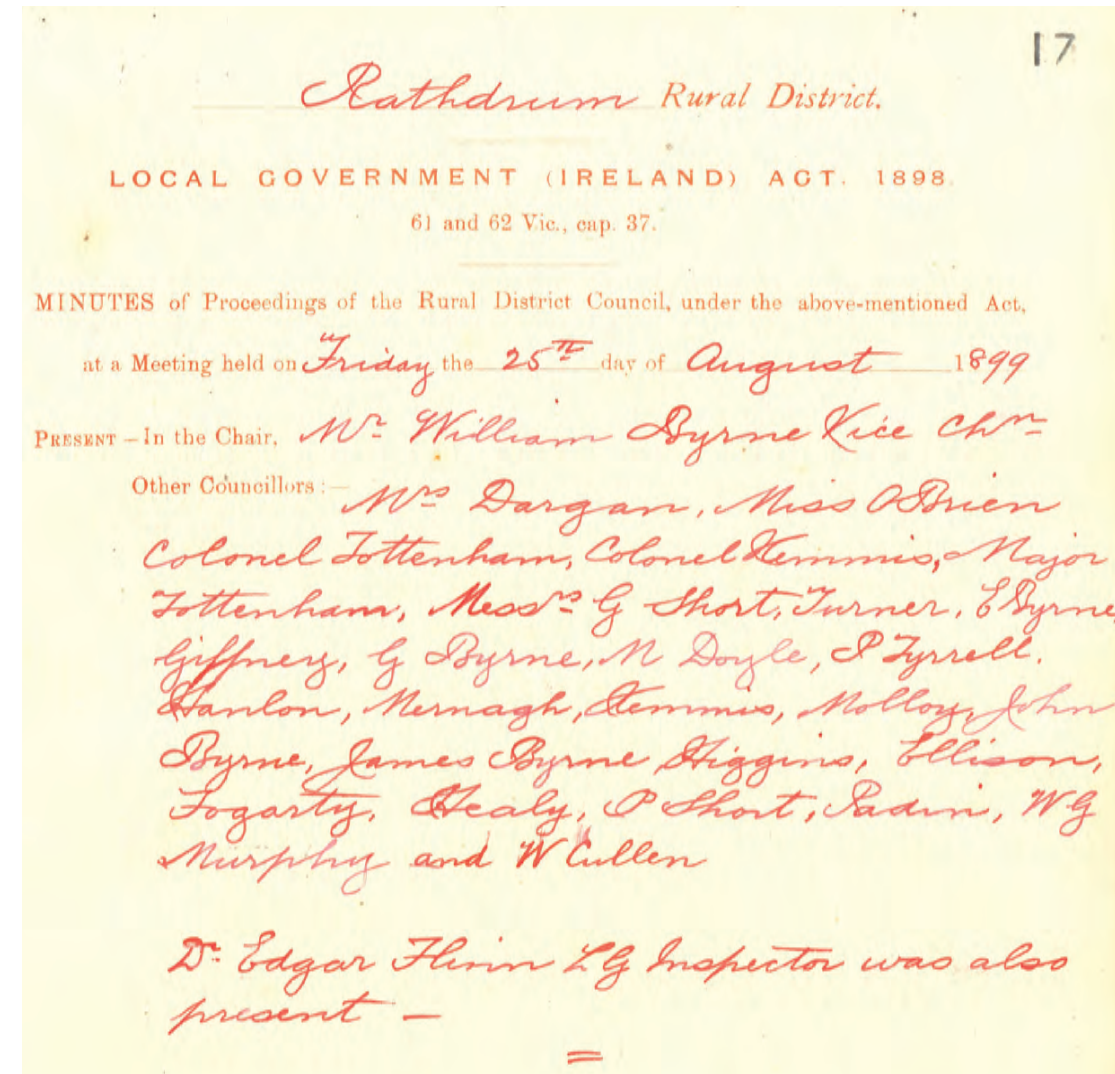 17
Rathdrum Rural District.
LOCAL GOVERNMENT (IRELAND) ACT. 1898.
61 and 62 Vic., cap. 37.
MINUTES of Proceedings of the Rural District Council, under the above-mentioned Act,
at a Meeting held on Friday the 25th day of August 1899
PRESENT – In the Chair, Mr William Byrne Vice Chn
Other Councillors :— Mrs Dargan, Miss OBrien
Colonel Tottenham, Colonel Kemmis, Major
Tottenham, Messrs G Short, Turner, E Byrne,
Giffney, G Byrne, M Doyle, P Tyrrell.
Hanlon, Mernagh, Kemmis, Molloy, John
Byrne, James Byrne Higgins, Ellison,
Fogarty, Healy, P Short, Padin, WG
Murphy and W Cullen
Dr Edgar Flinn LG Inspector was also
present —